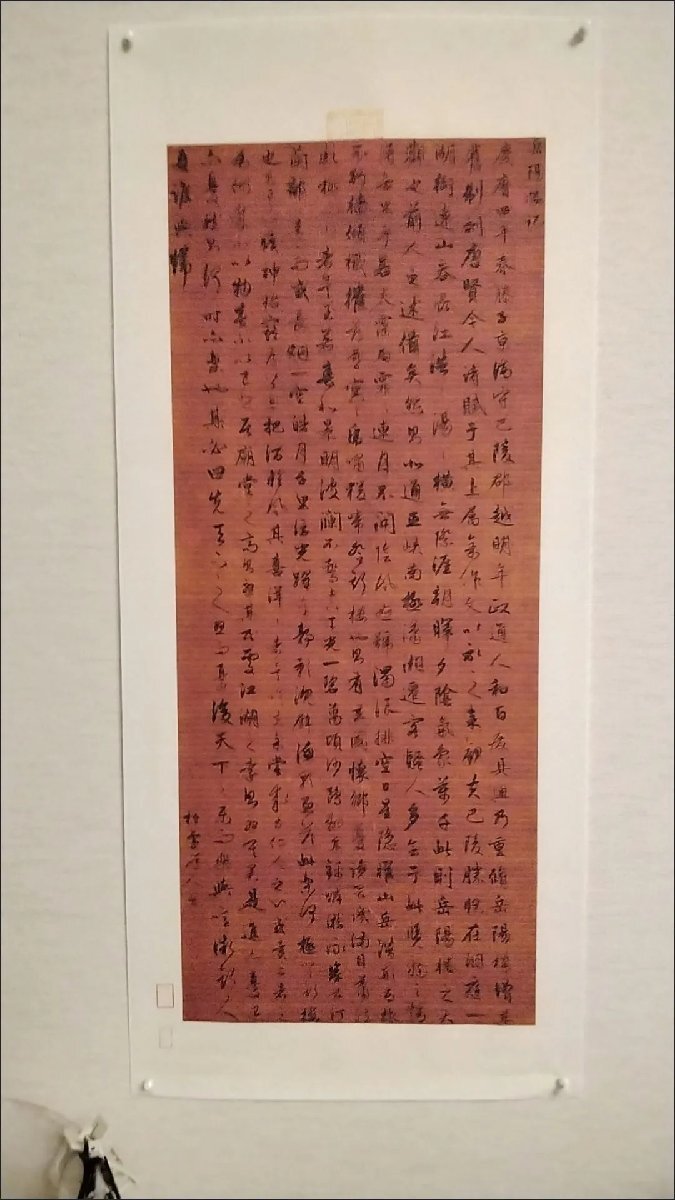 岳陽樓記
慶曆四年春滕子京謫守巴陵郡越明年政通人和百廢具興乃重修岳陽樓增其
舊制刻唐賢今人詩賦于其上屬予作文以記之予觀夫巴陵勝狀在洞庭一
湖銜遠山吞長江浩浩湯湯橫無際涯朝暉夕陰氣象萬千此則岳陽樓之大
觀也前人之述備矣然則北通巫峽南極瀟湘遷客騷人多會于此覽物之情
得無異乎若夫霪雨霏霏連月不開陰風怒號濁浪排空日星隱耀山岳潛形商旅
不行檣傾楫摧薄暮冥冥虎嘯猿啼登斯樓也則有去國懷鄉憂讒畏譏滿目蕭然
感極而悲者矣至若春和景明波瀾不驚上下天光一碧萬頃沙鷗翔集錦鱗游泳岸芷汀
蘭郁郁青青而或長煙一空皓月千里浮光躍金靜影沉璧漁歌互答此樂何極登斯樓
也則有心曠神怡寵辱皆忘把酒臨風其喜洋洋者矣嗟夫予嘗求古仁人之心或異二者之
為何哉不以物喜不以己悲居廟堂之高則憂其民處江湖之遠則憂其君是進亦憂退
亦憂然則何時而樂耶其必曰先天下之憂而憂後天下之樂而樂歟噫微斯人
吾誰與歸